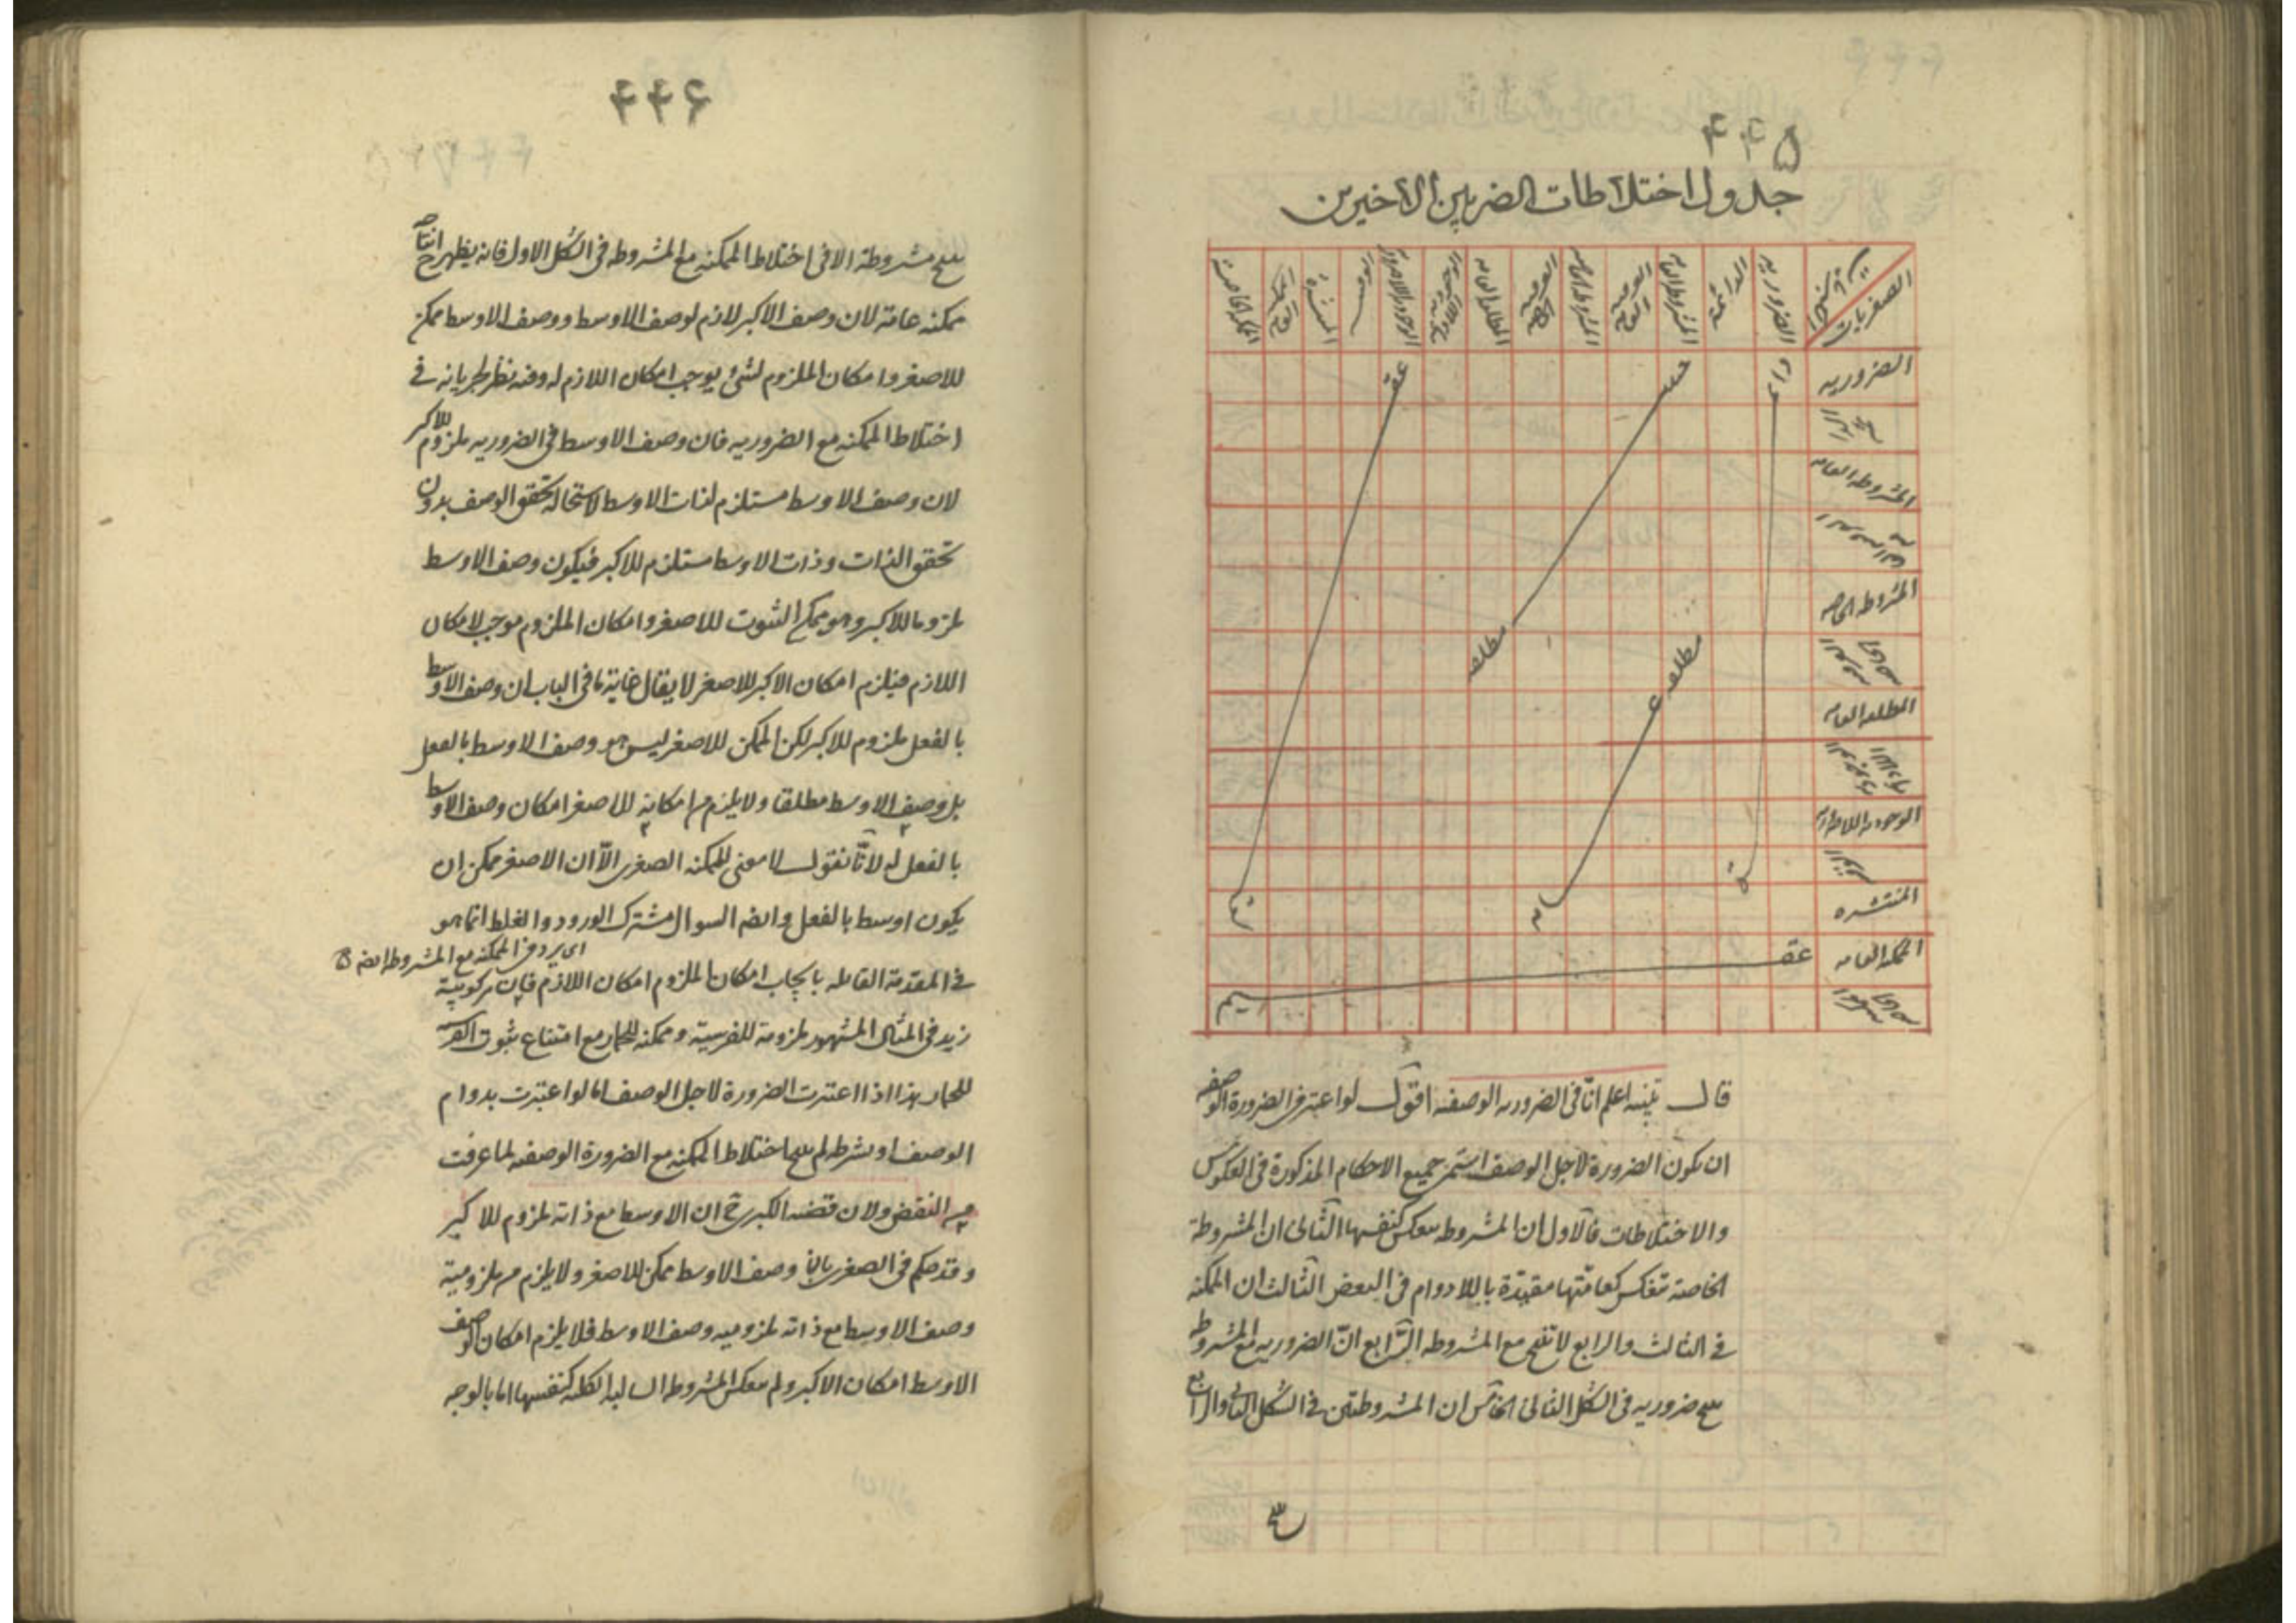 ۴۴۵
جدول اختلاطات الضربين الاخيرين
الصغريات
الضروريه
الدائمة
المشروطه العامه
العرفيه العامه
المشروطه الخاصه
العرفيه الخاصه
المطلقه العامه
الوجوديه اللادائمه
الوجوديه اللاضروريه
الوقتيه
المنتشرة
الممكنه العامه
الممكنه الخاصة
الضروريه
المشروطه العامه
المشروطه الخاصه
المطلقه العامه
الوجوديه اللاضروريه
المنتشره
الممكنه العامه
مطلقه
مطلقه عامه
عقيم
قال تنبيه اعلم انّا فى الضروريه الوصفيه اقول لو اعتبر فى الضرورة الوصفيه
ان يكون الضرورة لاجل الوصف استمر جميع الاحكام المذكورة فى العكوس
والاختلاطات فالاول ان المشروطه ينعكس كنفسها الثانى ان المشروطة
الخاصة تنعكس كعامّتها مقيّدة باللادوام فى البعض الثالث ان الممكنه
فى الثالث والرابع لا تنتج مع المشروطه الرّابع انّ الضروريه مع المشروطه
ينتج ضروريه فى الشكل الثانى الخامس ان المشروطتين فى الشكل الثانى والرابع
ينتج
۴۴۶
ينتج مشروطة الا فى اختلاط الممكنه مع المشروطه فى الشكل الاول فانه يظهر انتاج
ممكنه عامّة لان وصف الاكبر لازم لوصف الاوسط ووصف الاوسط ممكن
للاصغر وامكان الملزوم لشئ يوجب امكان اللازم له وفيه نظر لجريانه فى
اختلاط الممكنه مع الضروريه فان وصف الاوسط فى الضروريه ملزوم للاكبر
لان وصف الاوسط مستلزم لذات الاوسط لاستحالة تحقق الوصف بدون
تحقق الذات وذات الاوسط مستلزم للاكبر فيكون وصف الاوسط
ملزوما للاكبر وهو ممكن الثبوت للاصغر وامكان الملزوم موجب لامكان
اللازم فيلزم امكان الاكبر للاصغر لا يقال غاية ما فى الباب ان وصف الاوسط
بالفعل ملزوم للاكبر لكن الممكن للاصغر ليس هو وصف الاوسط بالفعل
بل وصف الاوسط مطلقا ولا يلزم من امكانه للاصغر امكان وصف الاوسط
بالفعل له لانّا نقول لا معنى للممكنه الصغرى الّا ان الاصغر ممكن ان
يكون اوسط بالفعل وايضا السوال مشترك الورود والغلط انما هو
اى يرد فى الممكنه مع المشروطه ايضا
فى المقدمة القائله بايجاب امكان الملزوم امكان اللازم فان مركوبية
زيد فى المثال المشهور ملزومة للفرسية وممكنه للحمار مع امتناع ثبوت الفرسية
للحمار هذا اذا اعتبرت الضرورة لاجل الوصف اما لو اعتبرت بدوام
الوصف او بشرطه لم ينتج اختلاط الممكنه مع الضرورة الوصفيه لما عرفت
من النقض ولان قضيه الكبرى ح ان الاوسط مع ذاته ملزوم للاكبر
وقد حكم فى الصغرى بان وصف الاوسط ممكن للاصغر ولا يلزم من ملزومية
وصف الاوسط مع ذاته ملزوميه وصف الاوسط فلا يلزم امكان الوصف
الاوسط امكان الاكبر ولم ينعكس المشروطه السالبه الكليه كنفسها اما بالوجه